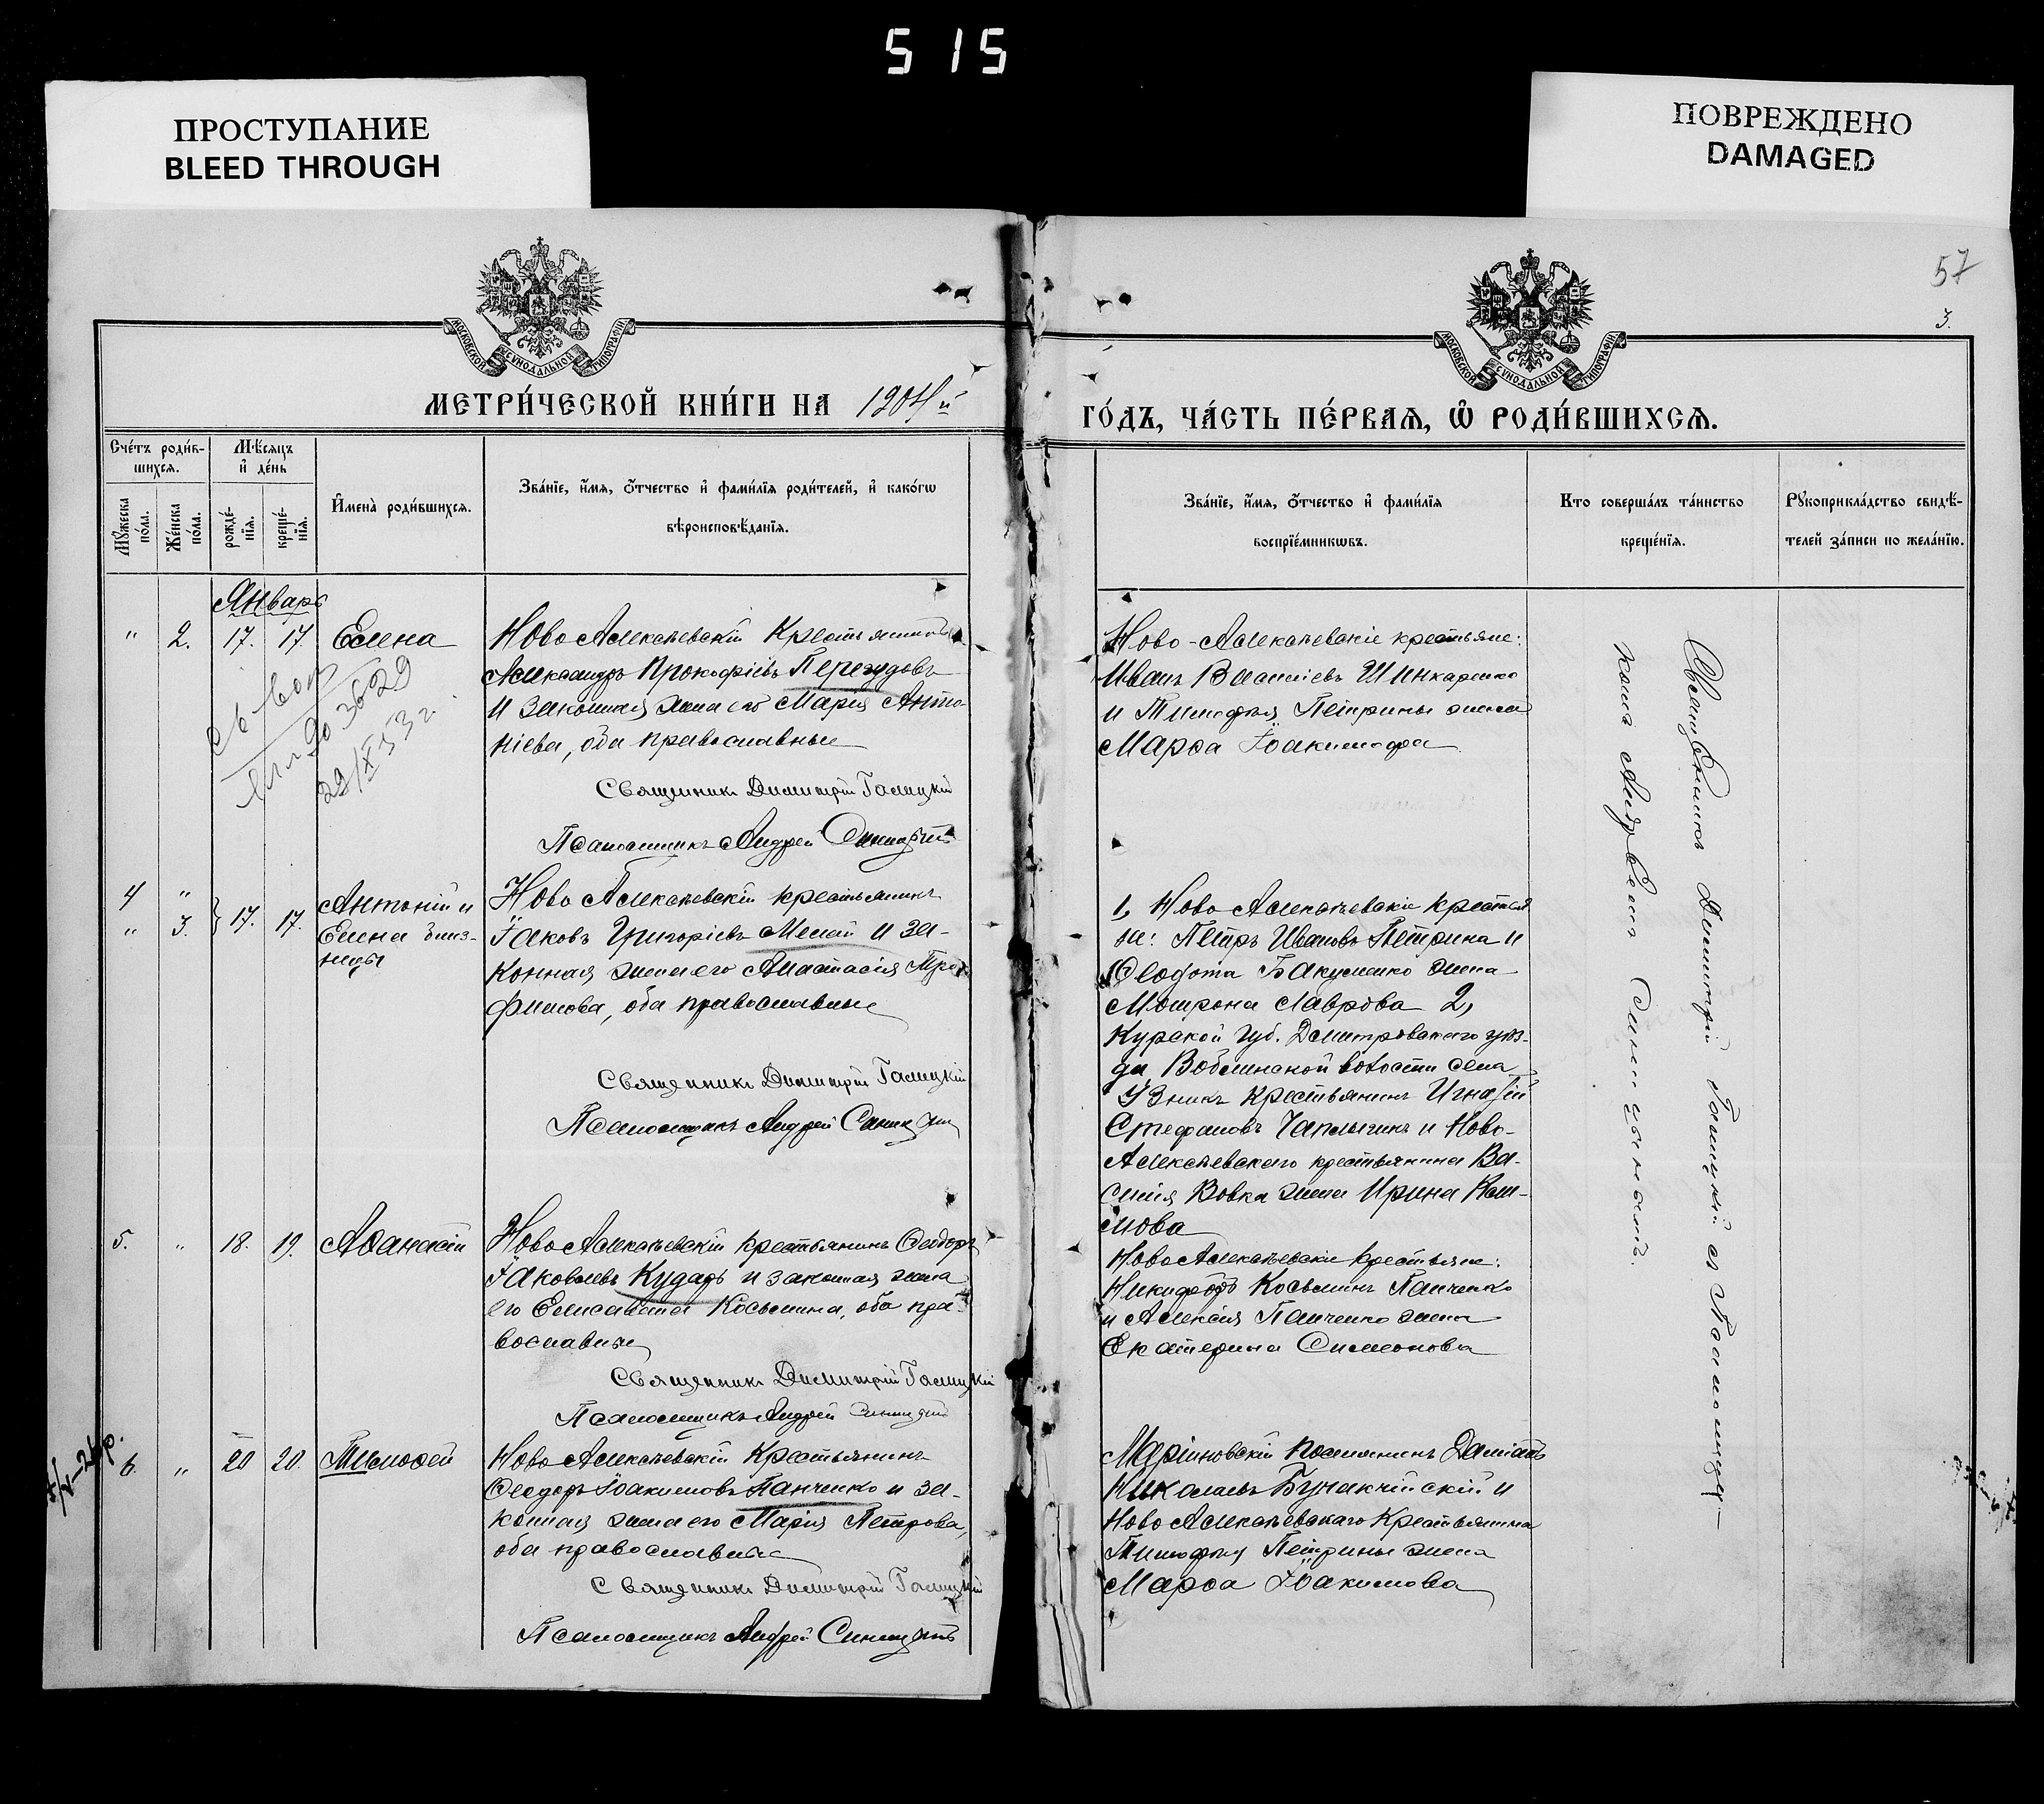 515
ПРОСТУПАНИЕ
BLEED THROUGH
ПОВРЕЖДЕНО
DAMAGED
57
3.
МОСКОВСКОЙ СѴНОДАЛЬНОЙ ТИПОГРАФІИ
МОСКОВСКОЙ СѴНОДАЛЬНОЙ ТИПОГРАФІИ
МЕТРИ́ЧЕСКОЙ КНИ́ГИ НА 1904й
ГО́ДЪ, ЧА́СТЬ ПЕ́РВАѦ, Ѡ҆ РОДИ́ВШИХСѦ.
Сче́тъ роди́в-
шихся.
Мꙋ́жеска по́ла.
Же́нска по́ла.
Мѣ́сяцъ
и҆ де́нь
рожде́-
нїя.
креще́-
нїя.
И҆мена̀ роди́вшихся.
Зва́нїе, и҆́мя, ѻ҆́тчество и҆ фами́лїя роди́телей, и҆ како́гѡ
вѣроисповѣ́данїя.
Зва́нїе, и҆́мя, ѻ҆́тчество и҆ фами́лїя
воспрїе́мникѡвъ.
Кто соверша́лъ та́инство
креще́нїя.
Рꙋкоприкла́дство свидѣ́-
телей за́писи по жела́нїю.
Январь
" 2. 17. 17. Елена
Ново Алексѣевскій Крестьянинъ
Александръ Прокофіевъ Перегудовъ
и законная жена его Марія Анто-
ніева, оба православные
Священникъ Димитрій Галицкій
Псаломщикъ Андрей
29/XI 53 г.
Ново-Алексѣевскіе крестьяне:
Иванъ Василіевъ Шинкаренко
и Тимофея Петрины жена
Марѳа Іоакимова
4 "
" 3. 17. 17. Антоній и
Елена близ-
нецы
Ново Алексѣевскій крестьянинъ
Іаковъ Григоріевъ и за-
конная жена его Анастасія Тро-
фимова, оба православные
Священникъ Димитрій Галицкій
Псаломщикъ Андрей
1, Ново Алексѣевскіе крестья
не: Петръ Ивановъ Петрина и
Ѳеодота Бакуменко жена
Мотрона Лаврова 2,
Курской губ. Дмитровскаго уѣз-
да волости села
крестьянинъ Игнатій
Стефановъ Чаплыгинъ и Ново-
Алексѣевскаго крестьянина Ва-
силія Вовка жена Ирина
мова
5. " 18. 19. Аѳанасій
Ново Алексѣевскій крестьянинъ Ѳеодоръ
Іаковлевъ Кударь и законная жена
его Елисавета Косьмина, оба пра-
вославные
Священникъ Димитрій Галицкій
Псаломщикъ Андрей
Ново Алексѣевскіе крестьяне:
Никифоръ Косьминъ Панченко
и Алексія Панченко жена
Екатерина Симеонова
6. " 20 20. Тимоѳей
Ново Алексѣевскій Крестьянинъ
Ѳеодоръ Іоакимовъ Панченко и за-
конная жена его Марія Петрова,
оба православные
Священникъ Димитрій Галицкій
Псаломщикъ Андрей
Маріиновскій поселянинъ Даміанъ
Николаевъ и
Ново Алексѣевскаго Крестьянина
Тимофея Петрины жена
Марѳа Іоакимова
Священникъ Димитрій Галицкій съ Псаломщи-
комъ Андреемъ